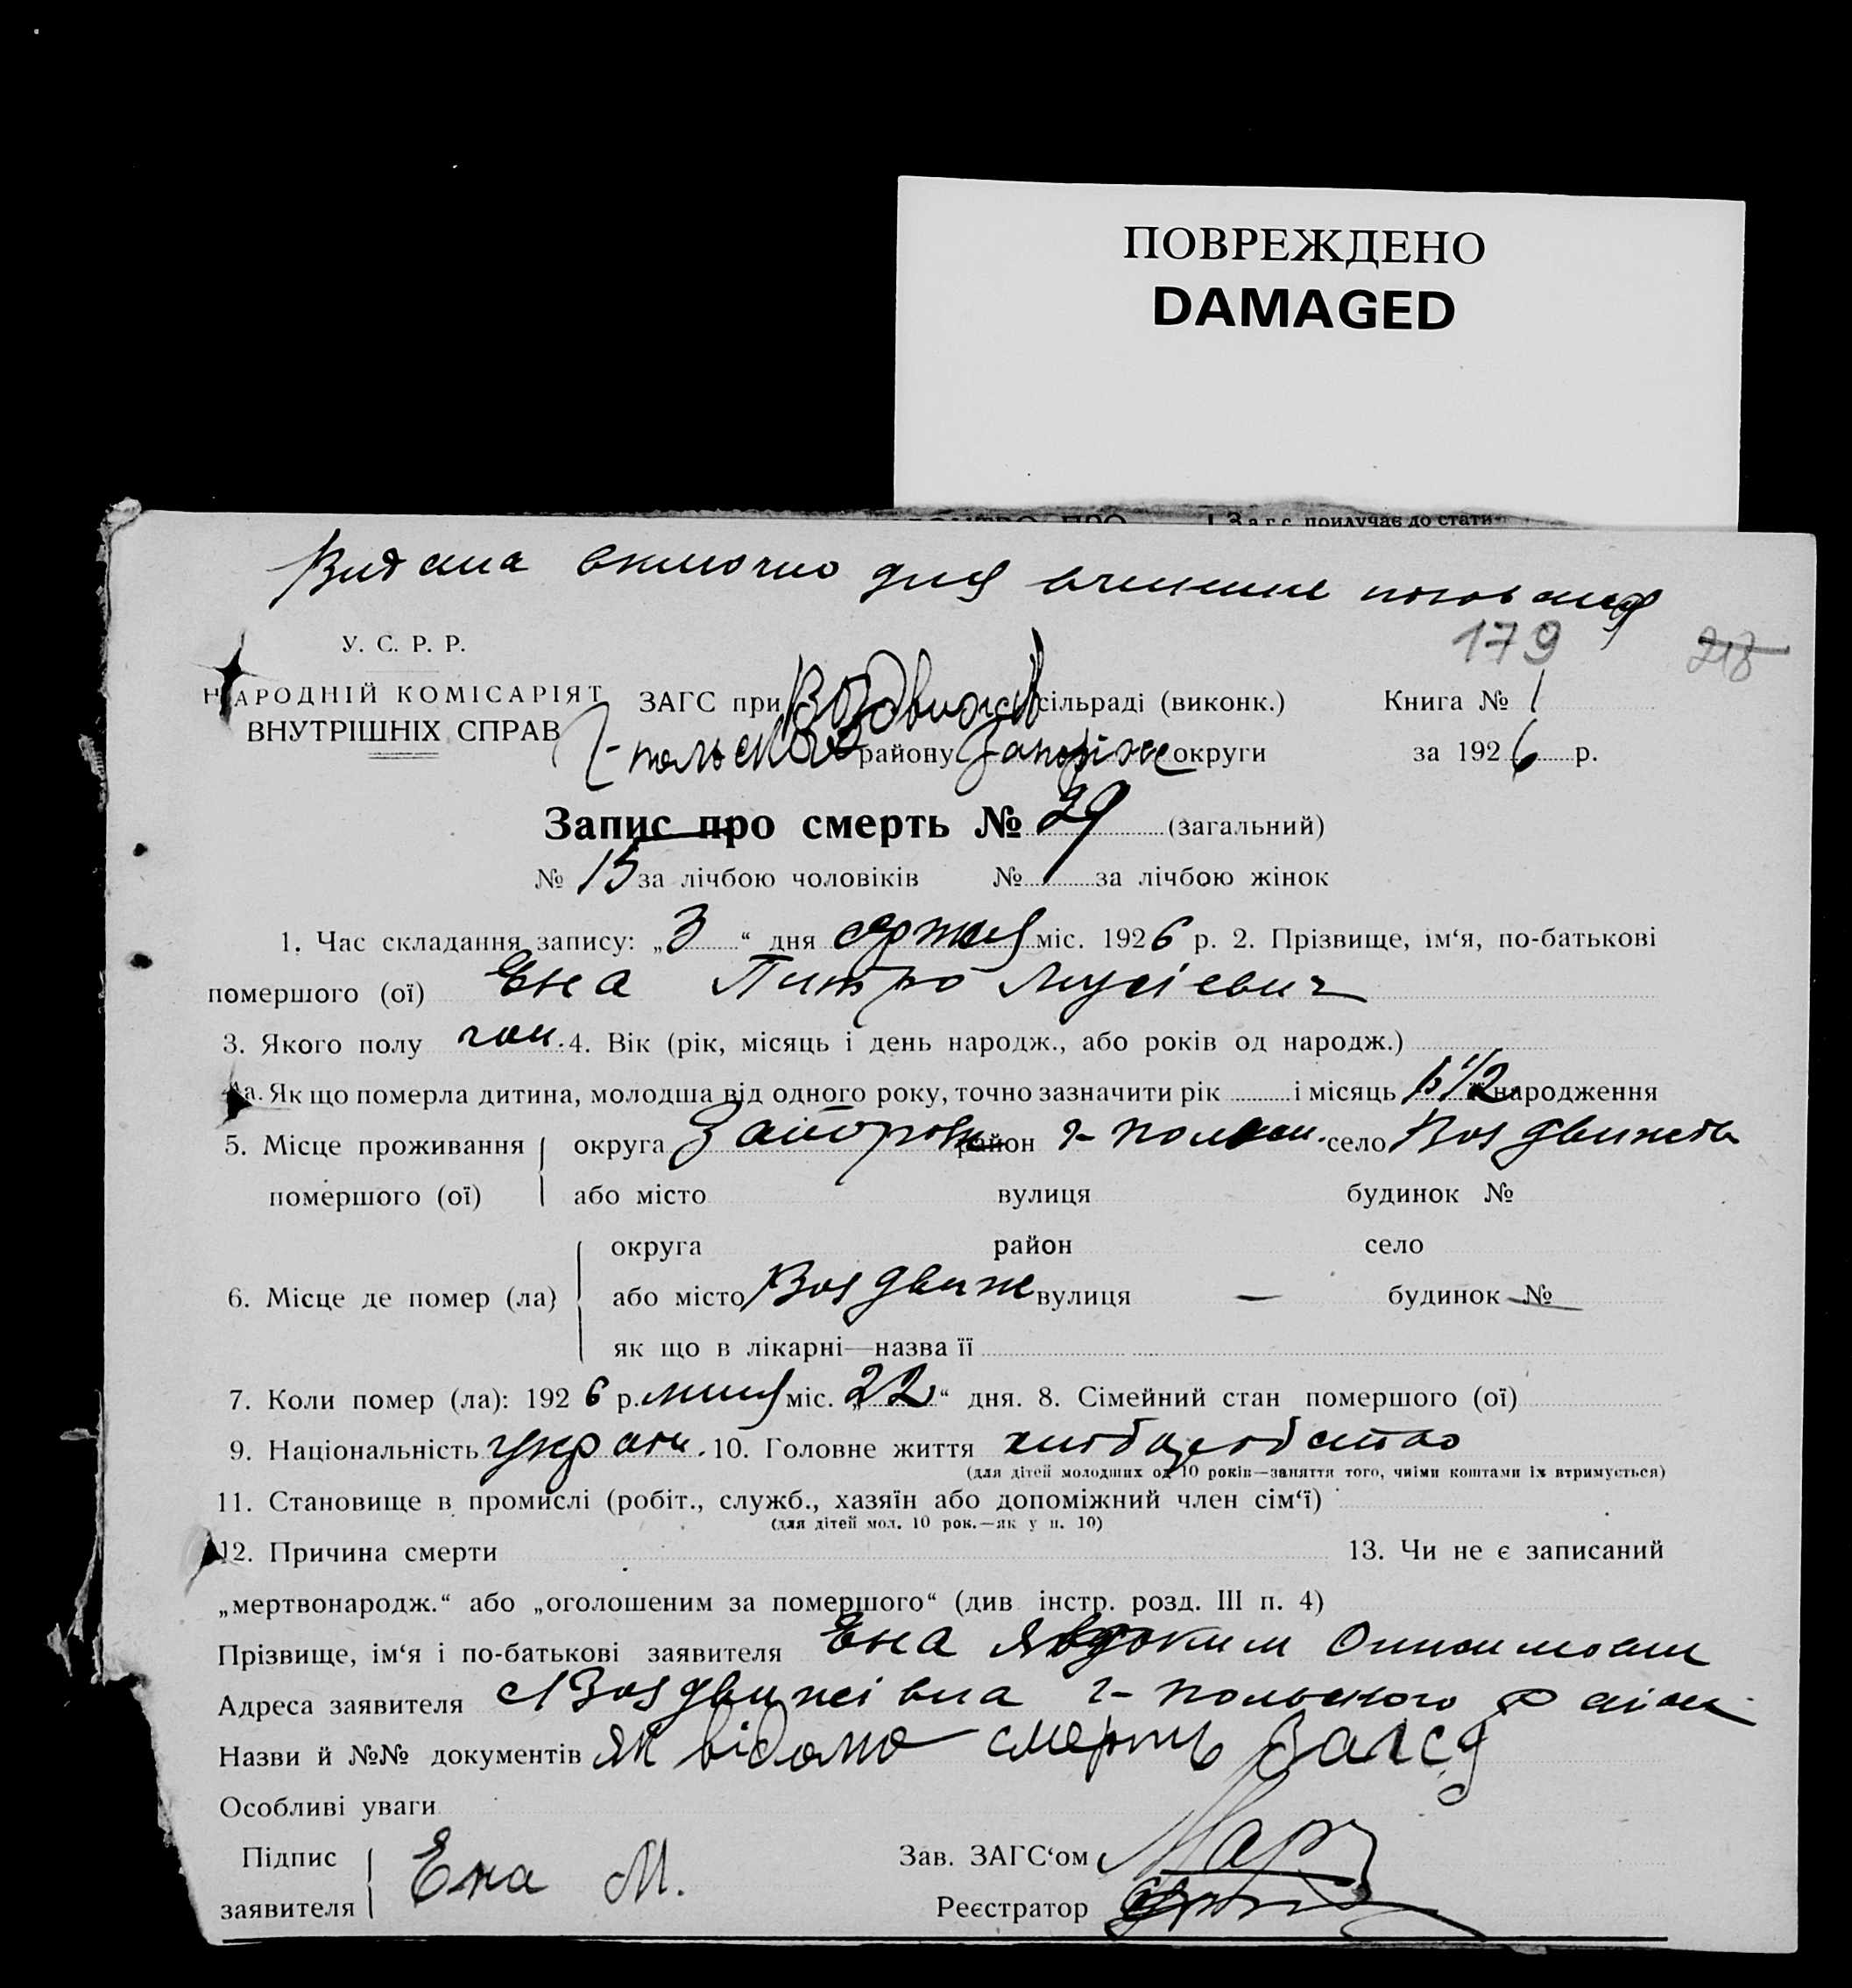 ПОВРЕЖДЕНО
DAMAGED
Загс прилучає до стати-
Видана включно для
179 218
У. С. Р. Р.
НАРОДНІЙ КОМІСАРІЯТ ЗАГС при Воздвижів сільраді (виконк.) Книга № 1
ВНУТРІШНІХ СПРАВ Г-польского району Запоріж округи за 1926 р.
Запис про смерть № 29 (загальний)
№ 15 за лічбою чоловіків № за лічбою жінок
1. Час складання запису: „3“ дня серпня міс. 1926 р. 2. Прізвище, ім‘я, по-батькові
помершого (ої) Ена Питро Мусієвич
3. Якого полу чол. 4. Вік (рік, місяць і день народж., або років од народж.)
4а. Як що померла дитина, молодша від одного року, точно зазначити рік і місяць 1/2 народження
5. Місце проживання округа Запоріж район Г-польск. село Воздвижівк
помершого (ої) або місто вулиця будинок №
округа район село
6. Місце де помер (ла) або місто Воздвиж вулиця — будинок №
як що в лікарні—назва її
7. Коли помер (ла): 1926 р. липня міс. „22“ дня. 8. Сімейний стан помершого (ої)
9. Національність україн. 10. Головне життя
(для дітей молодших од 10 років—заняття того, чиїми коштами їх втримується)
11. Становище в промислі (робіт., служб., хазяїн або допоміжний член сім‘ї)
(для дітей мол. 10 рок.—як у п. 10)
12. Причина смерти 13. Чи не є записаний
„мертвонародж.“ або „оголошеним за помершого“ (див інстр. розд. III п. 4)
Прізвище, ім‘я і по-батькові заявителя Ена Явдоким
Адреса заявителя с Воздвижівка Г-польского район
Назви й №№ документів як відомо смерть Загсу
Особливі уваги
Підпис Зав. ЗАГС‘ом
заявителя Ена М. Реєстратор